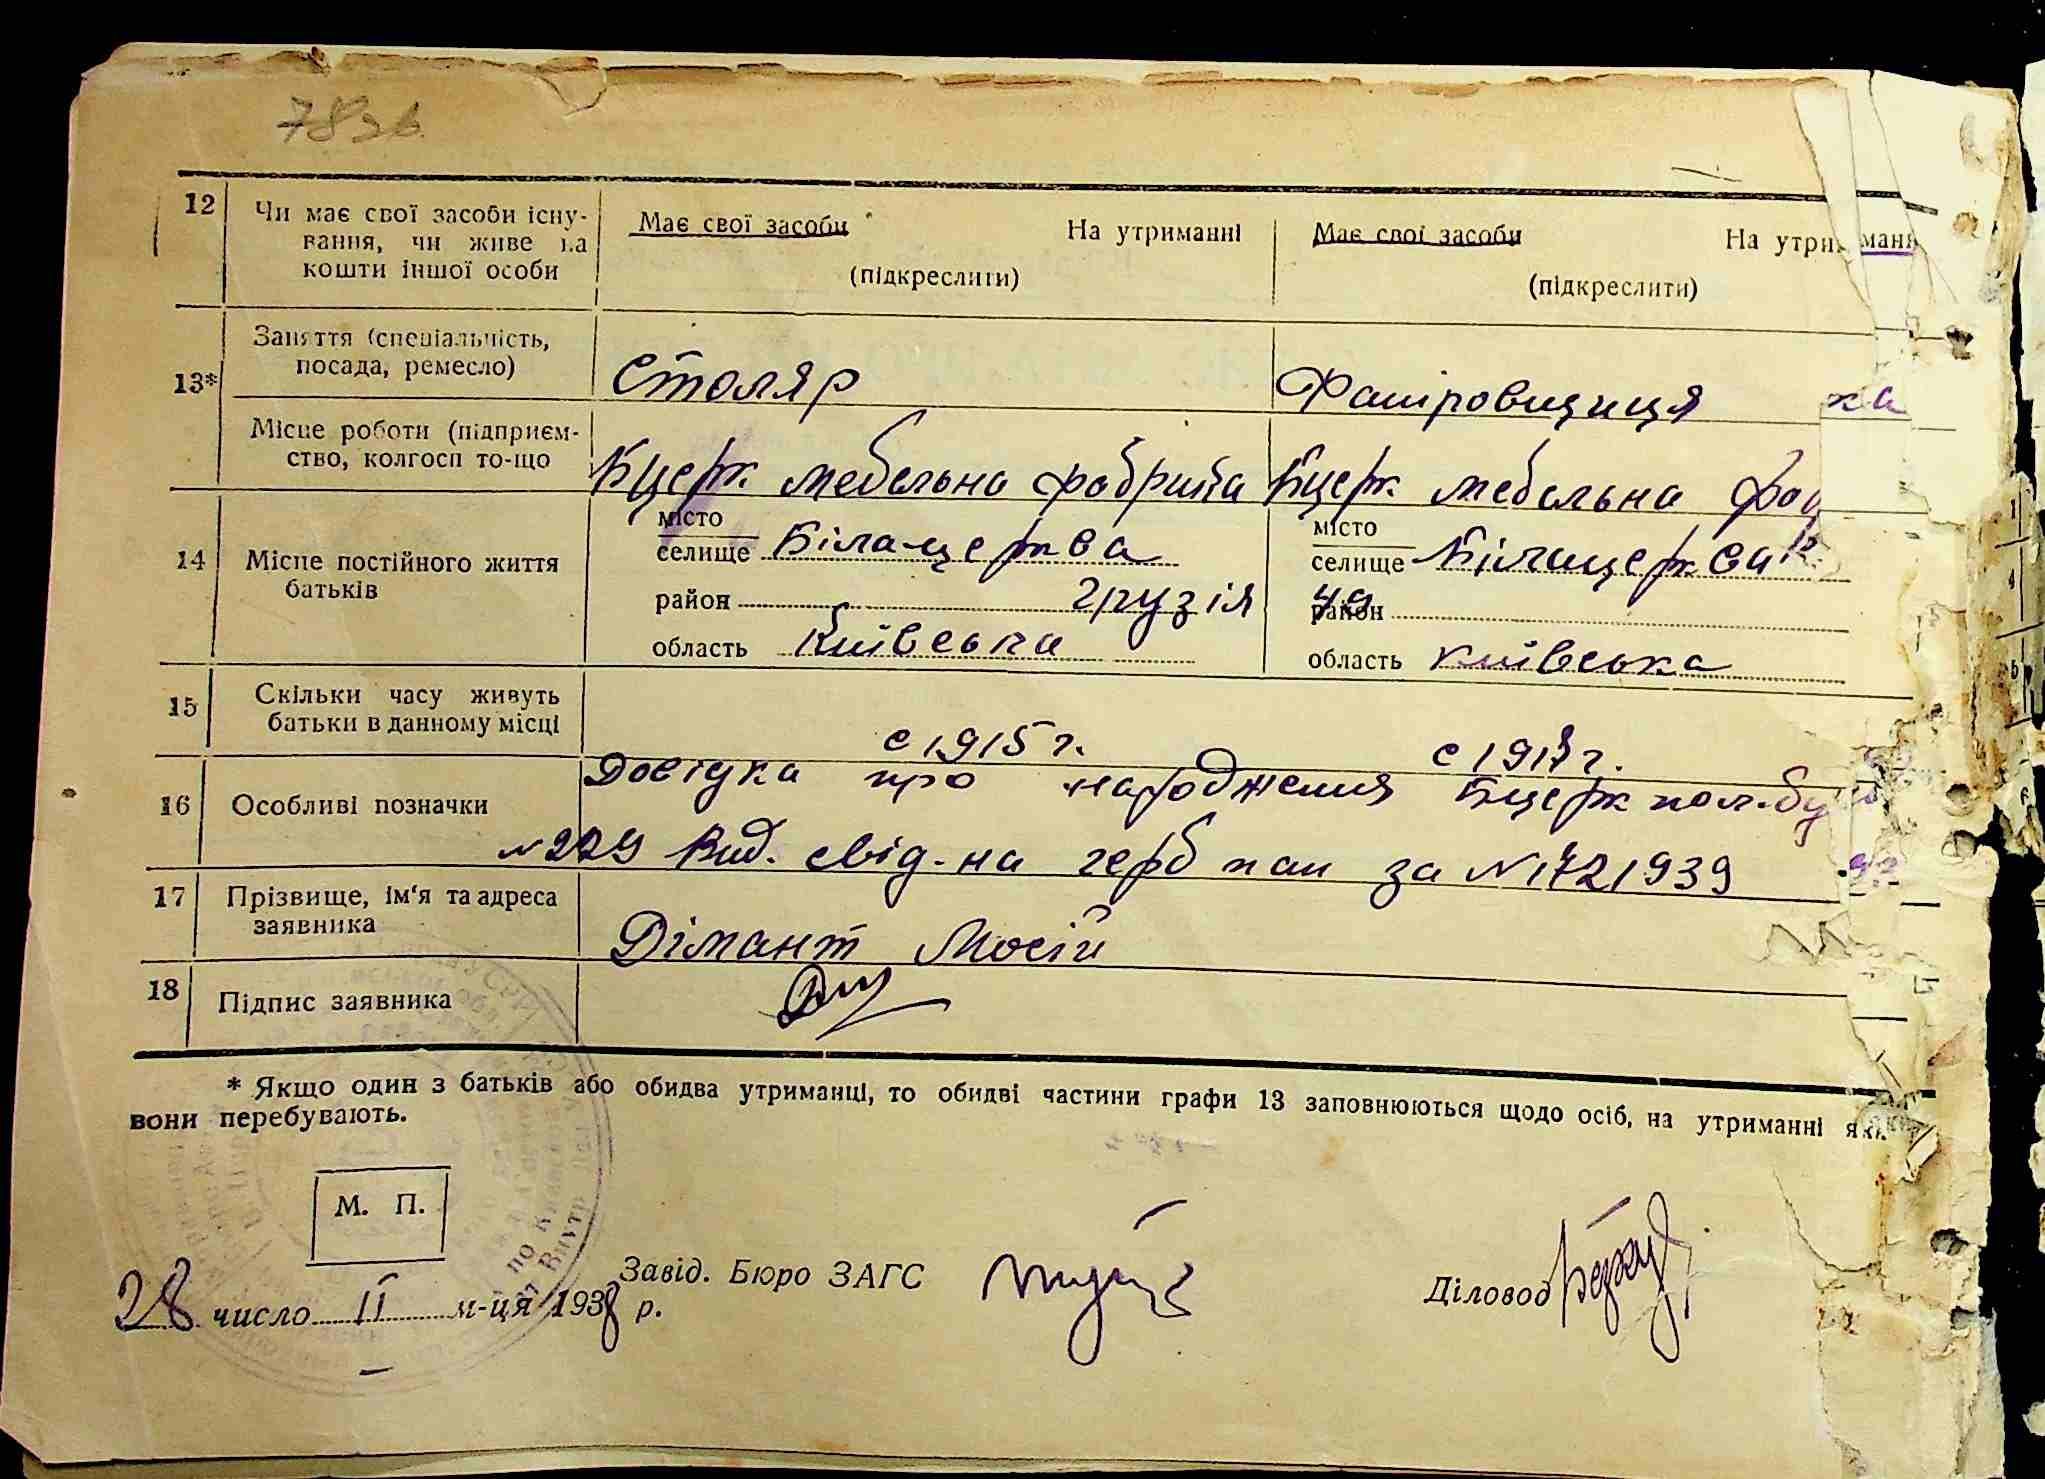 78зв
12 Чи має свої засоби існування, чи живе на кошти іншої особи
Має свої засоби На утриманні Має свої засоби На утриманні
(підкреслити) (підкреслити)
13* Заняття (спеціальність, посада, ремесло)
Столяр Фаніровщиця
Місце роботи (підприємство, колгосп то-що
Бцерк мебельна фабрика Бцерк мебельна фаб
14 Місце постійного життя батьків
місто місто
селище Біла-церква селище Білацерква
район Грузія 49 район
область Київська область Київська
15 Скільки часу живуть батьки в данному місці
с 1915 г. с 1917 г.
16 Особливі позначки
Довідка про народження Бцерк пол.бу
№229 Вид. свід-на герб пап за №1721939
17 Прізвище, ім'я та адреса заявника
Дімант Мосій
18 Підпис заявника
* Якщо один з батьків або обидва утриманці, то обидві частини графи 13 заповнюються щодо осіб, на утриманні яки
вони перебувають.
М. П.
28 число II м-ця 1938 р.
Завід. Бюро ЗАГС
Діловод